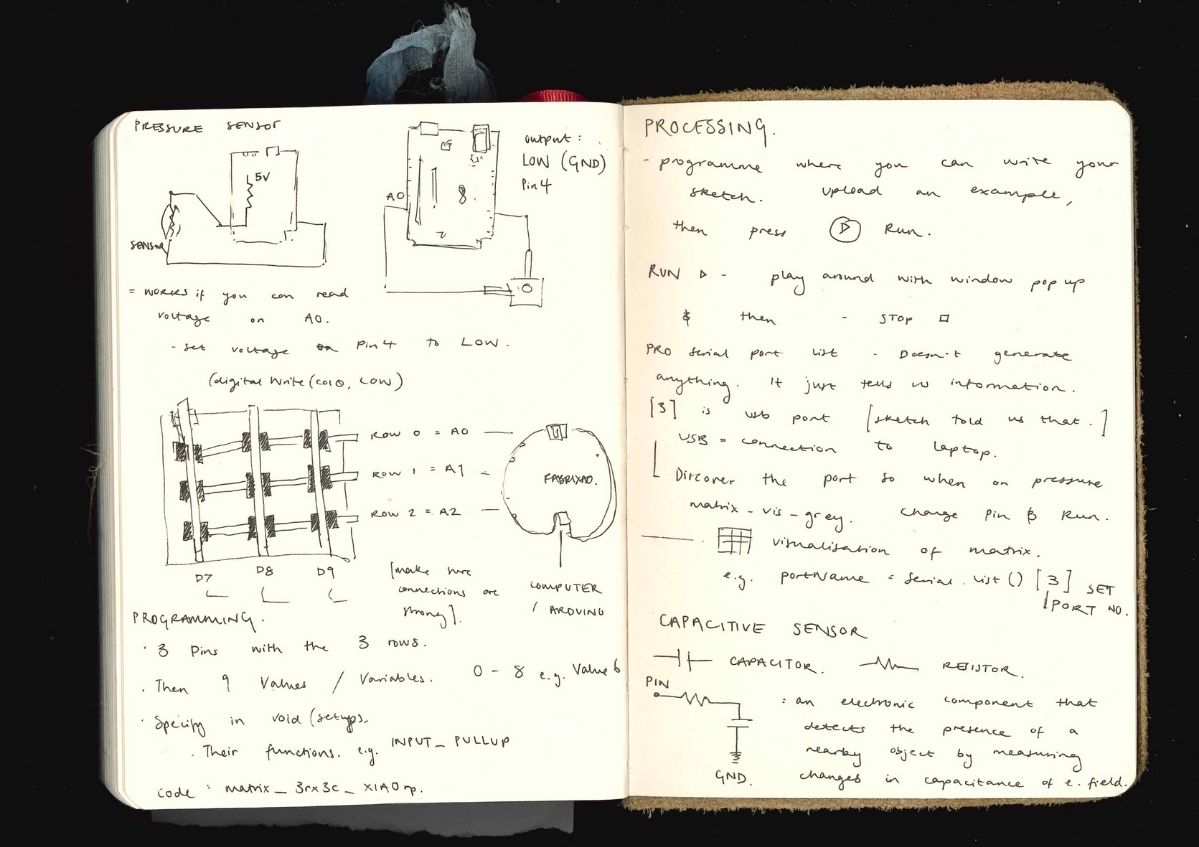 PRESSURE SENSOR
5V
SENSOR
A0
output :
LOW (GND)
Pin 4
= WORKS if you can read
voltage on A0.
- set voltage on Pin 4 to LOW.
(digital Write (col0, LOW)
ROW 0 = A0
ROW 1 = A1
ROW 2 = A2
FABRIXAO.
D7 D8 D9
[make sure
connections are
strong].
COMPUTER
/ ARDUINO
PROGRAMMING.
· 3 Pins with the 3 rows.
· Then 9 Values / Variables. 0 - 8 e.g. Value 6
· Specify in void (setups.
. Their functions. e.g. INPUT_PULLUP
code : matrix_3rx3c_XIAO rp.
PROCESSING.
- programme where you can write your
sketch. upload an example,
then press ▷ Run.
RUN ▷ - play around with window pop up
& then - STOP □
PRO serial port list - Doesn't generate
anything. It just tells us information.
[3] is usb port [sketch told us that.]
USB = connection to laptop.
Discover the port so when on pressure
matrix-vis-grey. change Pin & Run.
visualisation of matrix.
e.g. portName = serial.list() [3] SET
PORT NO.
CAPACITIVE SENSOR
CAPACITOR. RESISTOR.
PIN
: an electronic component that
detects the presence of a
nearby object by measuring
changes in capacitance of e. field.
GND.